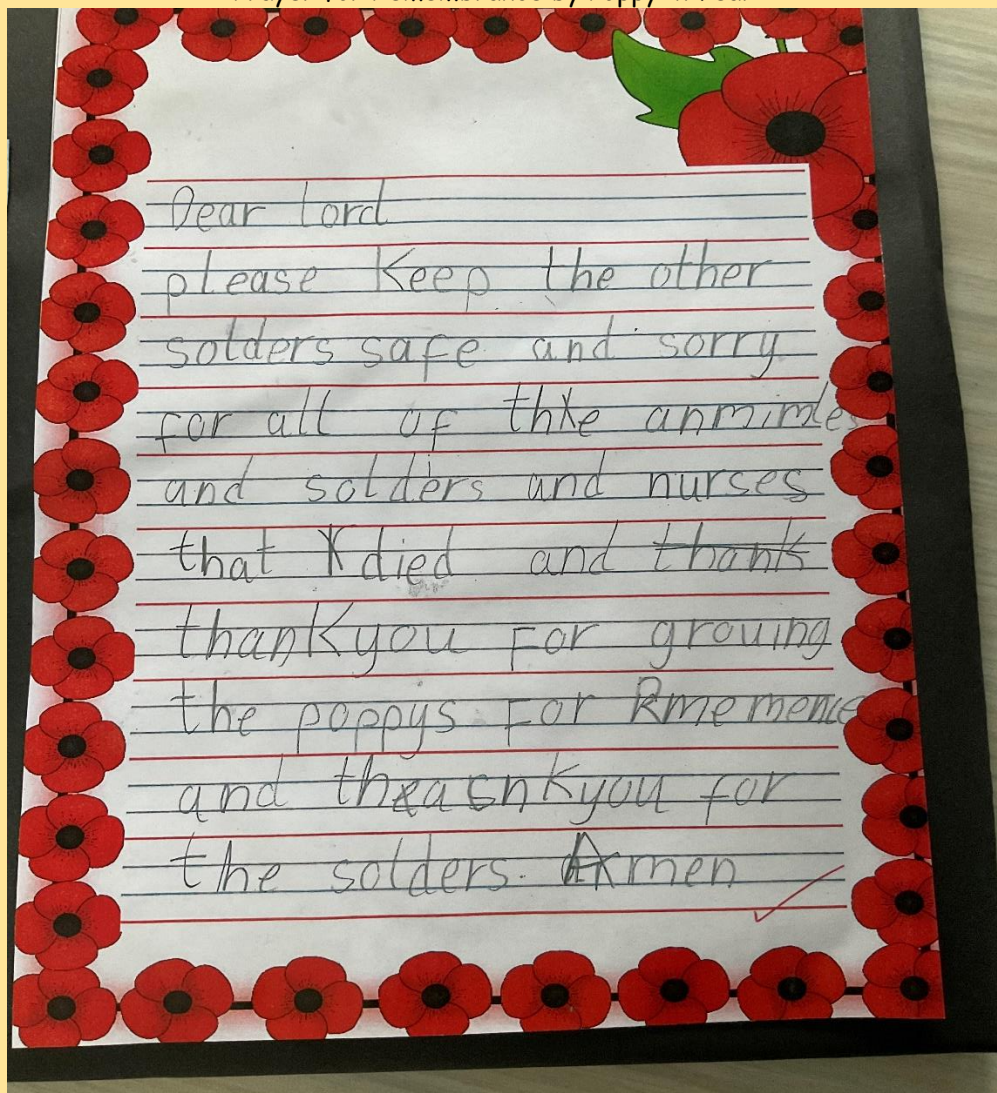 Dear Lord
please Keep the other
solders safe and sorry
for all of thke anmimles
and solders and nurses
that died and thank
thankyou For grouing
the poppys For Rmemence
and thankyou for
the solders. Amen